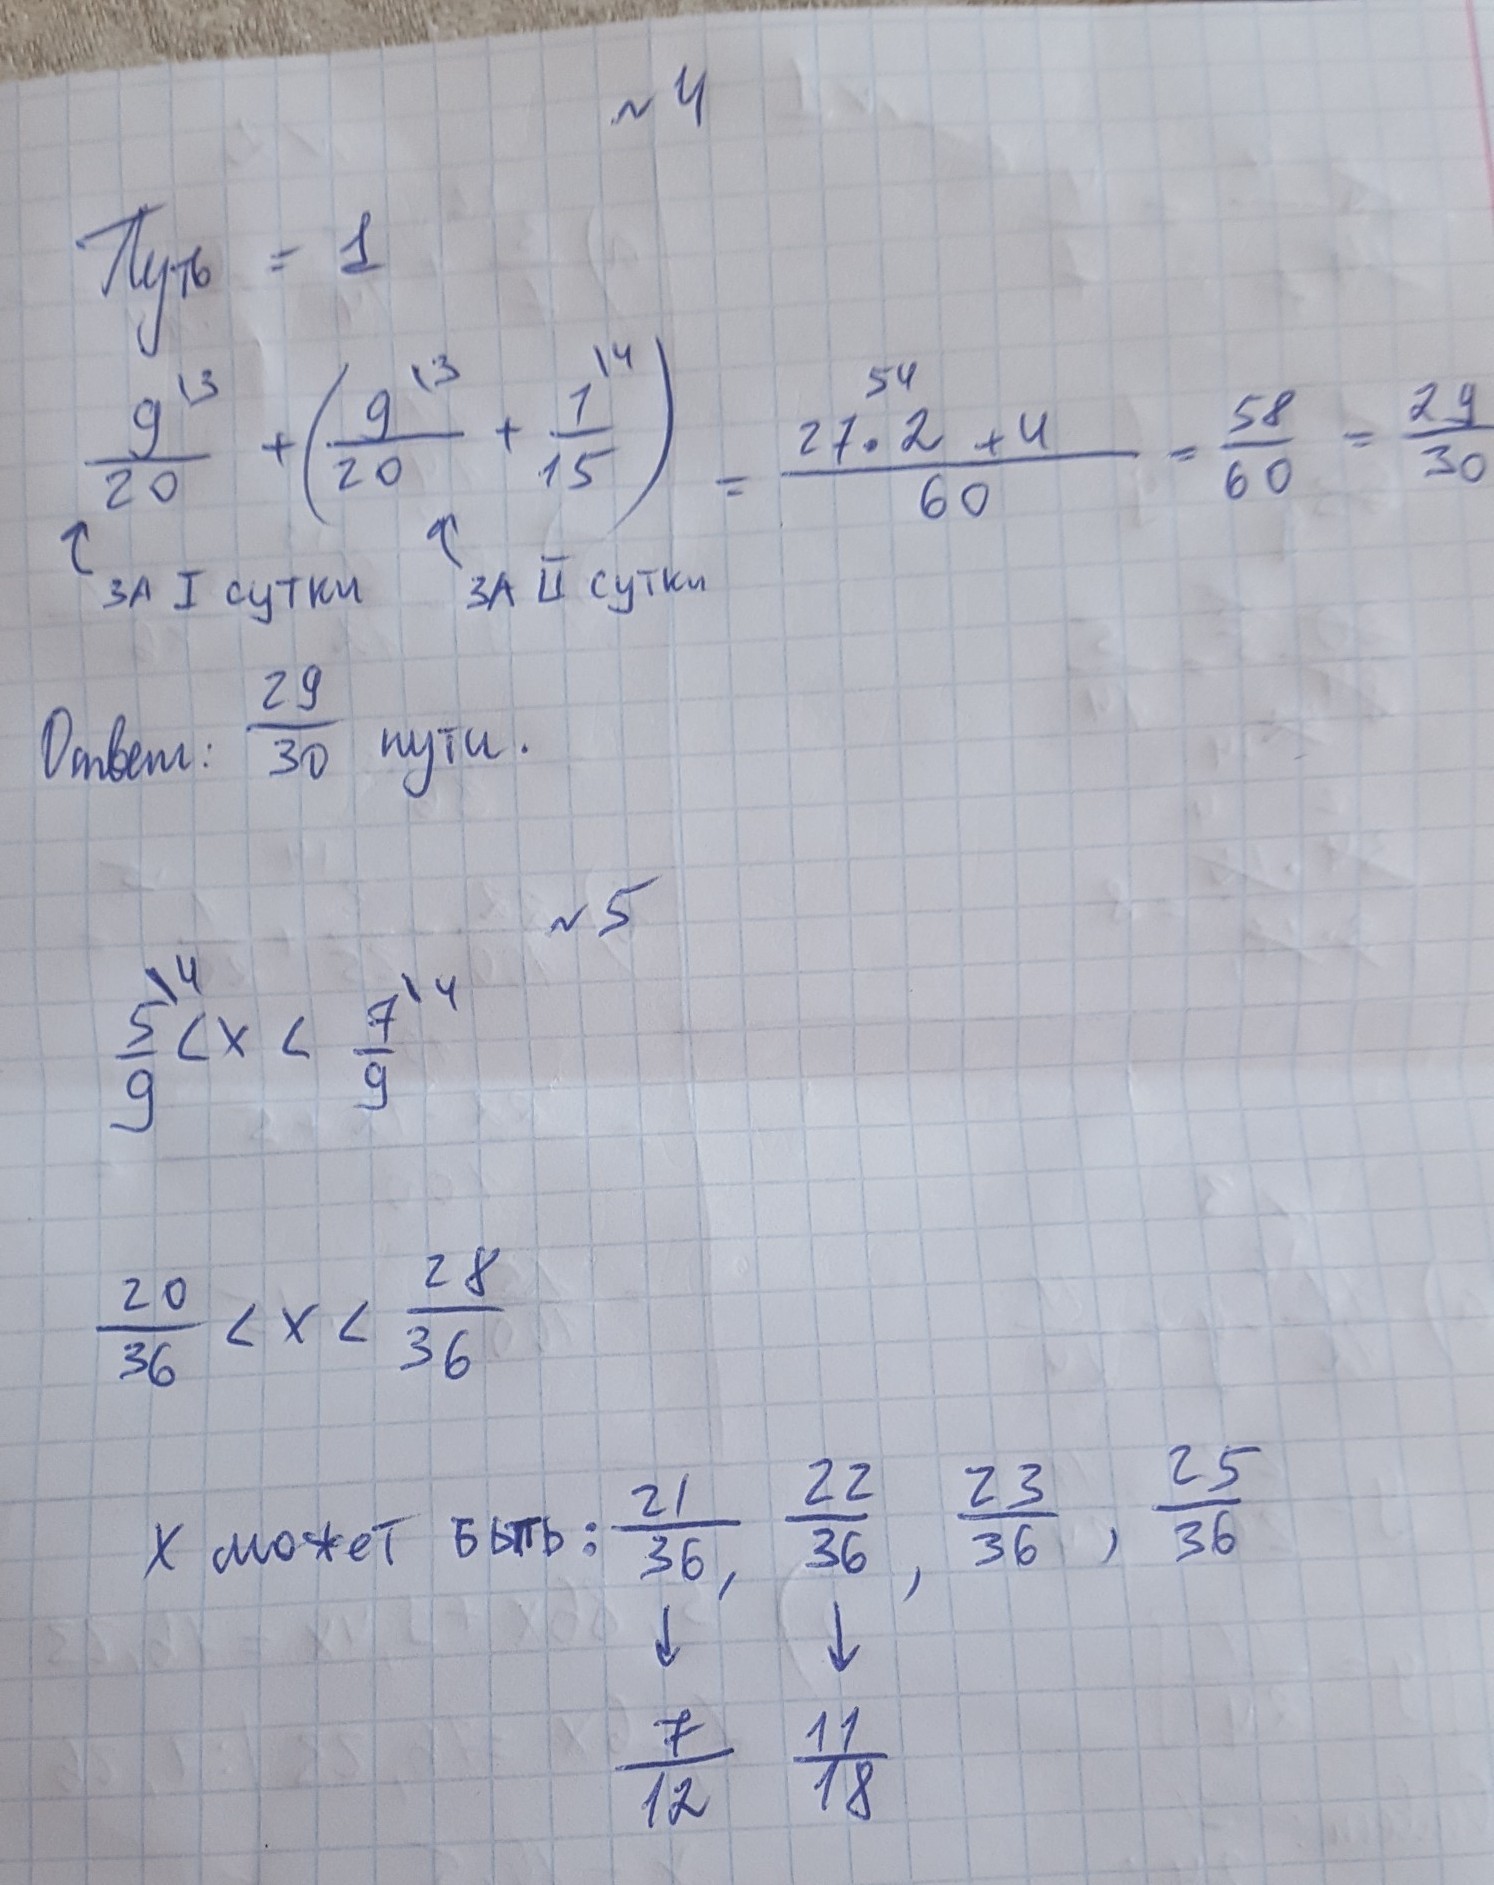 ~ 4
Путь = 1
9\3/20 + (9\3/20 + 1\4/15) = (27·2 + 4)/60 = 58/60 = 29/30
54
за I сутки за II сутки
Ответ: 29/30 пути.
~ 5
5\4/9 < x < 7\4/9
20/36 < x < 28/36
x может быть: 21/36, 22/36, 23/36, 25/36
↓ ↓
7/12 11/18